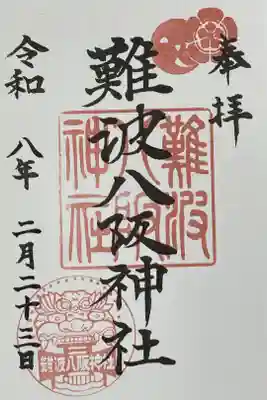 奉拝
難波八阪神社
難波八阪神社
令和 八年 二月二十三日
難波八阪神社